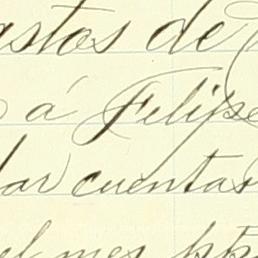 astos de
á Felipe
dar cuentas
el mes